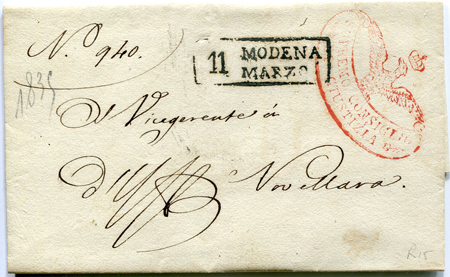 N.º 940.
11 MODENA
MARZO
CONSIGLIO
GIUSTIZIA
1835
Al Vicegerente di
Novellara.
R15